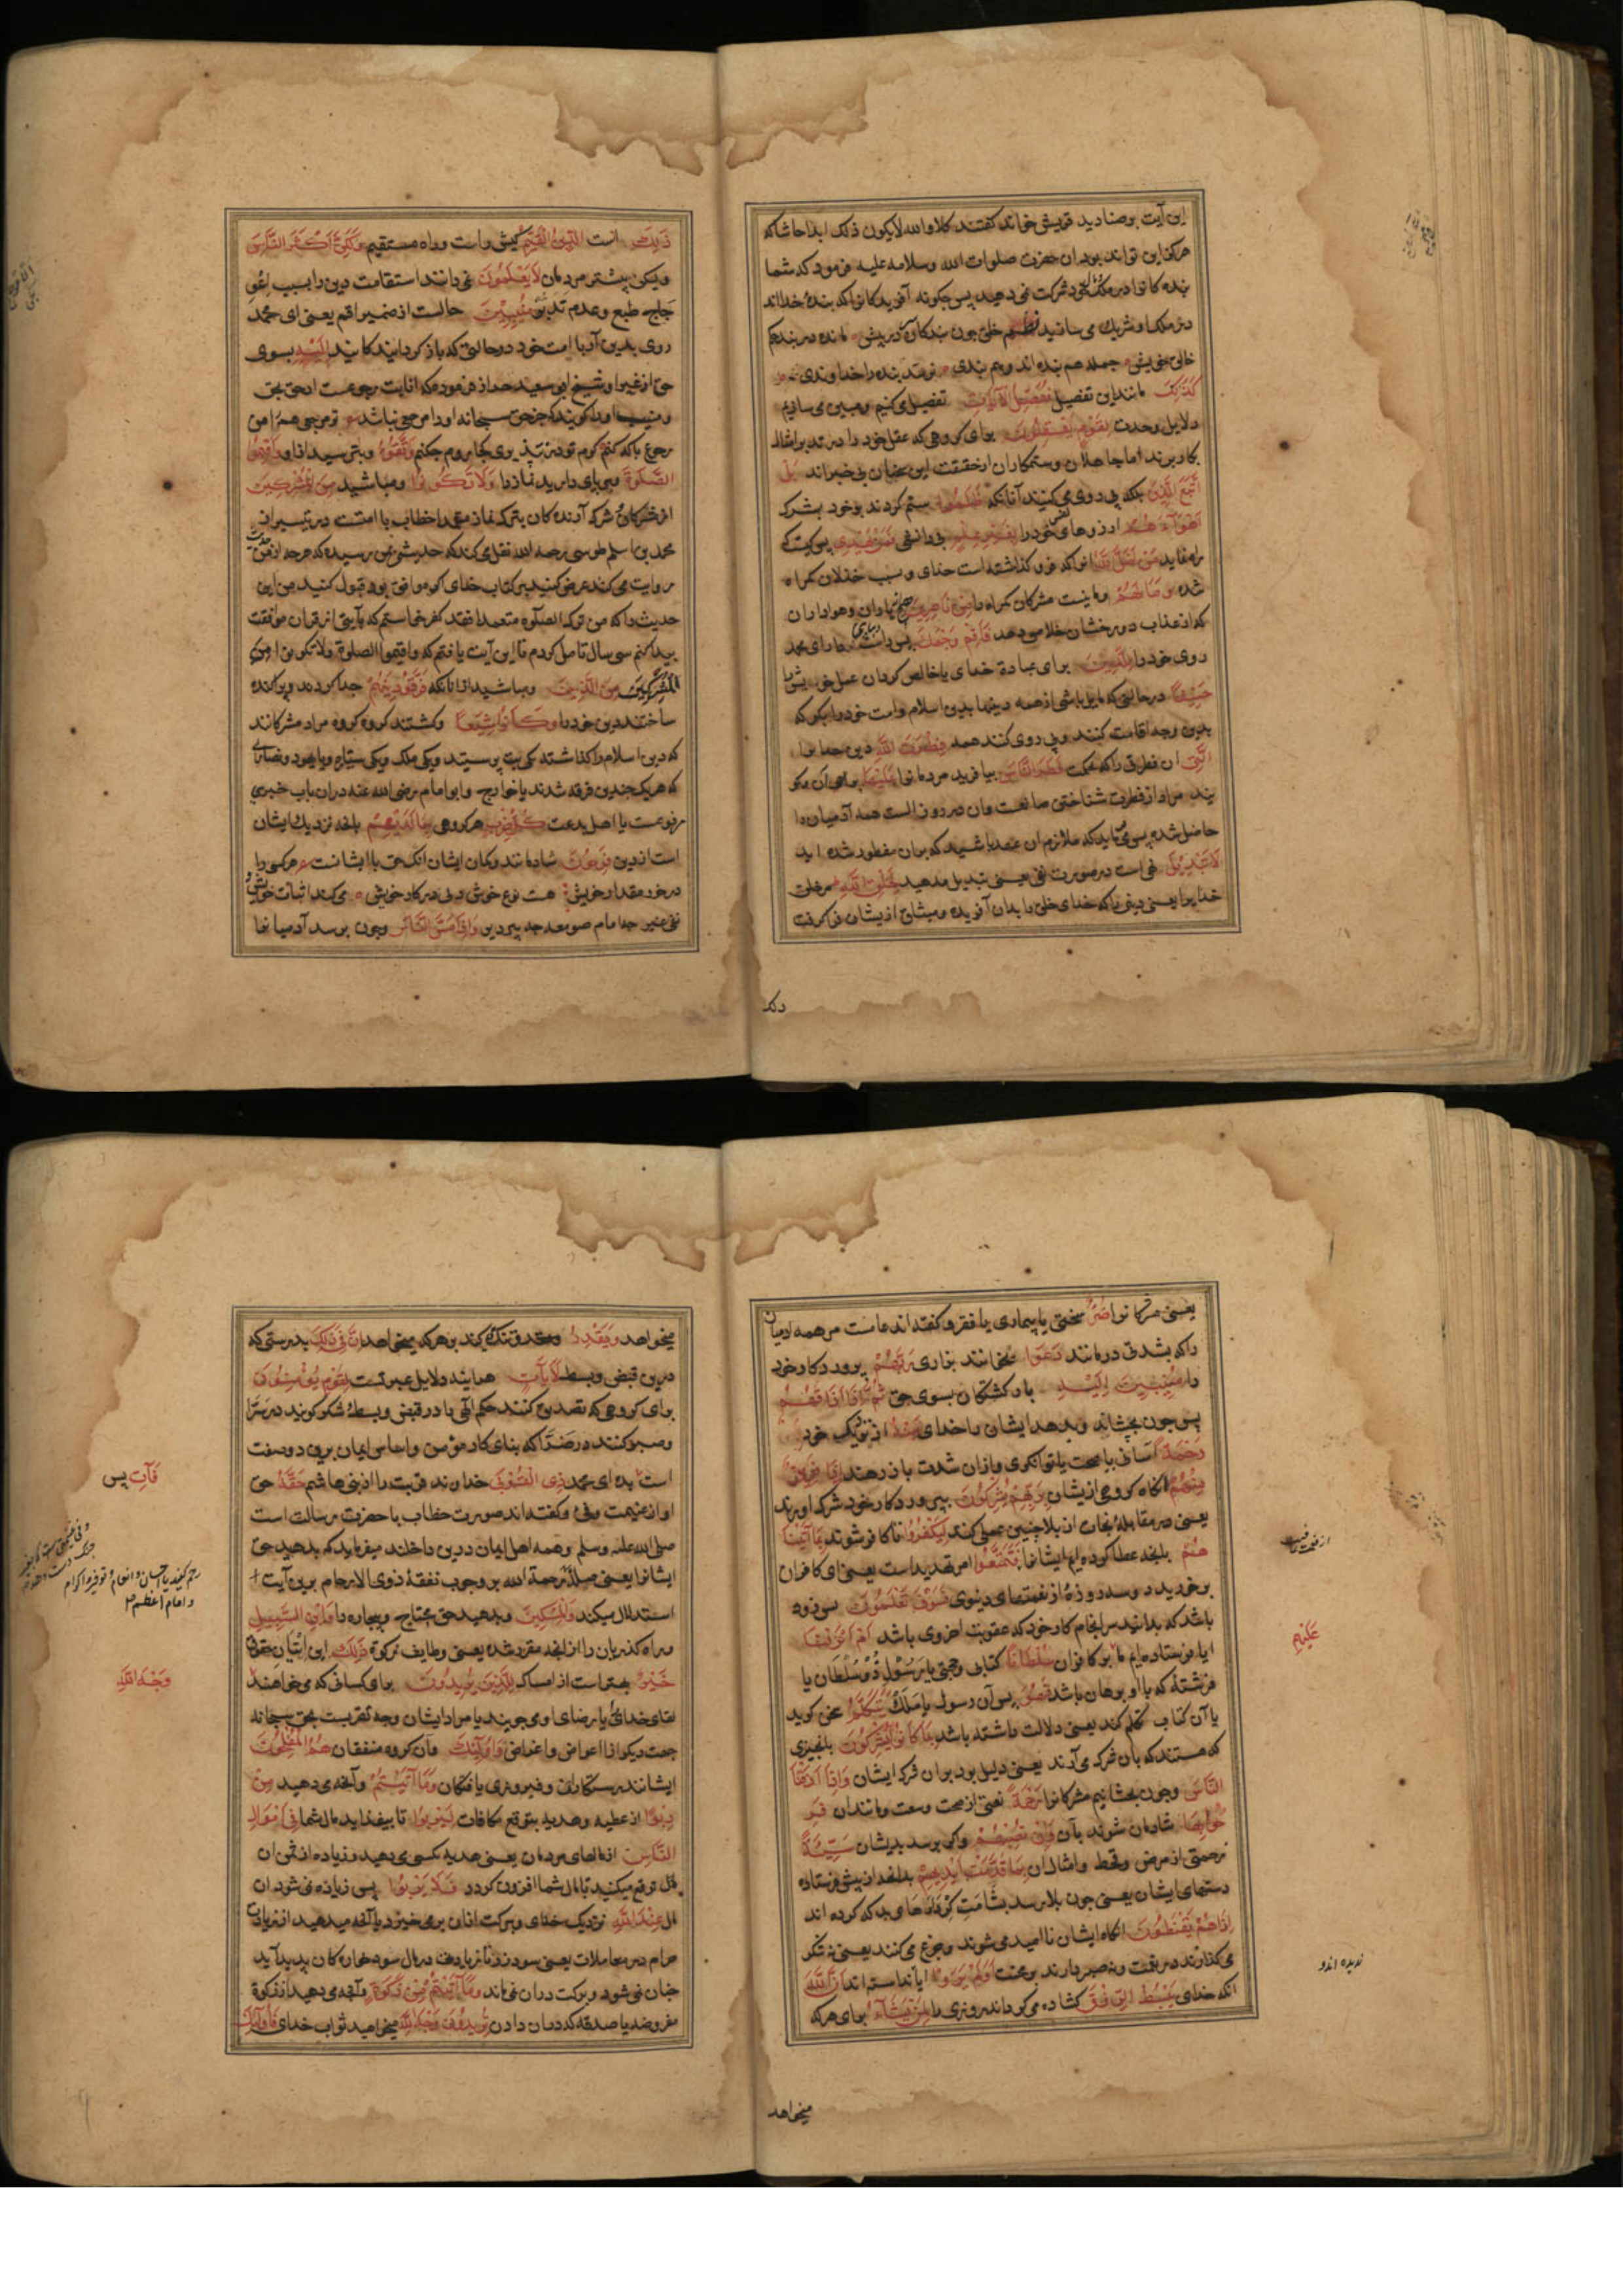 این آیت بر صنادید قریش خواند گفتند کلا والله لا یکون ذلک ابدا حاشا که
هرگز این تواند بود ان حضرت صلوات الله وسلامه علیه فرمود که شما
بنده کانرا در ملک خود شرکت نمی دهید پس چگونه آفریدکانرا که بندهٔ خدااند
در ملک او شریک می سازید نظم خلق چون بندکان در پیش مانده در بند حکم
خالق خویش جمله هم بنده اند و هم بندی نرسد بنده را خداوندی
کَذٰلِکَ مانند این تفصیل نُفَصِّلُ الْآیَاتِ تفصیل می کنیم و مبین می سازیم
دلایل وحدت لِقَوْمٍ یَعْقِلُونَ برای کروهی که عقل خود را در تدبر امثال
کار برند اما جاهلان و ستمکاران از حقیقت این سخنان بی خبراند بَلِ
اتَّبَعَ الَّذِینَ بلکه پی روی می کنند آنانکه ظَلَمُوا ستم کردند بر خود بشرک
اَهْوَآءَهُمْ ارزوهای نفس خود را بِغَیْرِ عِلْمٍ بی دانشی فَمَنْ یَهْدِی پس کیست که
راه نماید مَنْ اَضَلَّ اللّٰهُ انرا که فرو کذاشته است خدای و بسبب خذلان کمراه
شده وَمَا لَهُمْ و نیست مشرکان کمراه را مِنْ نَاصِرِینَ هیچ یاران و هواداران
که از عذاب دوزخشان خلاص دهد فَاَقِمْ وَجْهَکَ پس راست بدار ای محمد
روی خود را لِلدِّینِ برای عبادة خدای یا خالص کردان عمل خویش را
حَنِیفًا در حالتی که مایل باشی از همه دینها بدین اسلام و امت خود را بکو که
بدین وجه اقامت کنند و پی روی کنند همه فِطْرَتَ اللّٰهِ دین خدا را
الَّتِی ان فطرتی را که بحکمت فَطَرَ النَّاسَ بیافرید مردمانرا عَلَیْهَا بر آن مکو
یند مراد از فطرت شناختن صانعست و ان در روز الست همه آدمیان را
حاصل شده پس می باید که ملازم ان عهد باشید که بران مفطور شده اید
لَا تَبْدِیلَ نفی است در صورت نفی یعنی تبدیل مدهید لِخَلْقِ اللّٰهِ مر خلق
خدایرا یعنی دینی را که خدای خلق را بدان آفریده و میثاق از یشان فرا کرفت
ذلک
ذٰلِکَ انست الدِّینُ الْقَیِّمُ کیش راست و راه مستقیم وَلٰکِنَّ اَکْثَرَ النَّاسِ
ولیکن بیشتر مردمان لَا یَعْلَمُونَ نمی دانند استقامت دین را بسبب اعو
جاج طبع و عدم تدبر مُنِیبِینَ حالست از ضمیر اقم یعنی ای محمد
روی بدین آر با امت خود در حالتی که باز کردایند کانید اِلَیْهِ بسوی
حق از غیر او شیخ ابو سعید خراز فرموده که انابت رجوعست از حق بحق
و منیب او را کویند که جز حق سبحانه او را مرجعی نباشد تو مرجعی همه را من
رجوع با که کنم کرم تو در نپذیری کجا روم چکنم وَاتَّقُوهُ و بترسید ازو وَاَقِیمُوا
الصَّلٰوةَ و بپای دارید نماز را وَلَا تَکُونُوا و مباشید مِنَ الْمُشْرِکِینَ
از مشرکان شرک آرنده کان بترک نماز متعمدا خطاب با امتست در تیسیر از
محمد بن اسلم طوسی رحمه الله نقل می کند که حدیثی بمن رسیده که هر چه از من
روایت می کنند عرض کنید بر کتاب خدای کر موافق بود قبول کنید من این
حدیث را که من ترک الصلوة متعمدا فقد کفر خواستم که با آیتی از قران موافقت
پیدا کنم سی سال تامل کردم تا این آیت یافتم که واقیموا الصلوة ولا تکونوا من
الْمُشْرِکِینَ مِنَ الَّذِینَ و مباشید از انانکه فَرَّقُوا دِینَهُمْ جدا کردند و پراکنده
ساختند دین خود را وَکَانُوا شِیَعًا و کشتند کروه کروه مراد مشرکانند
که دین اسلام را کذاشته یکی بت پرستید و یکی ملک و یکی ستاره و یا یهود و نصارا
که هر یک چندین فرقه شدند یا خوارج و ابو امامه رضی الله عنه دران باب خبری
مرفوعست یا اهل بدعت کُلُّ حِزْبٍ هر کروهی بِمَا لَدَیْهِمْ بانچه نزدیک ایشان
است از دین فَرِحُونَ شادمانند و کمان ایشان انکه حق با ایشانست هر کسی را
در خور مقدار خویش هست نوع خوش دلی در کار خویش می کند اثبات خویش و
نفی غیر چه امام صومعه چه پیر دیر وَاِذَا مَسَّ النَّاسَ و چون برسد آدمیانرا
یعنی مشرکانرا ضُرٌّ سختی یا بیماری یا فقر و کفته اند عامست مر همه ادمیان
را که بشدتی درمانند دَعَوْا بخوانند بزاری رَبَّهُمْ پروردکار خود
را مُنِیبِینَ اِلَیْهِ باز کشتکان بسوی حق ثُمَّ اِذَا اَذَاقَهُمْ
پس چون بچشاند و بدهد ایشان را خدای مِنْهُ از نزدیک خود
رَحْمَةً آسانی یا صحت یا توانکری و ازان شدت باز رهند اِذَا فَرِیقٌ
مِنْهُمْ انکاه کروهی از یشان بِرَبِّهِمْ یُشْرِکُونَ بپروردکار خود شرک اورند
یعنی در مقابلهٔ نجات از بلا چنین عملی کنند لِیَکْفُرُوا تا کافر شوند بِمَا اٰتَیْنَا
هُمْ بانچه عطا کرده ایم ایشانرا فَتَمَتَّعُوا امر تهدیداست یعنی ای کافران
برخورید دو سه روزهٔ از نعمتهای دنیوی فَسَوْفَ تَعْلَمُونَ پس زود
باشد که بدانید سرانجام کار خود که عقوبت اخروی باشد اَمْ اَنْزَلْنَا
ایا فرستاده ایم ما بر کافران سُلْطَانًا کتاب و حجتی یا رسول ذو سلطان یا
فرشتهٔ که با او برهان باشد فَهُوَ پس آن رسول یا ملک یَتَکَلَّمُ سخن کوید
یا آن کتاب تکلم کند یعنی دلالت داشته باشد بِمَا کَانُوا بِهِ یُشْرِکُونَ بانچیزی
که هستند که بان شرک می آرند یعنی دلیل بود بران شرک ایشان وَاِذَا اَذَقْنَا
النَّاسَ و چون بچشانیم مشرکانرا رَحْمَةً نعمتی از صحت و سعت و مانند ان فَرِ
حُوا بِهَا شادمان شوند بآن وَاِنْ تُصِبْهُمْ و اکر برسد بدیشان سَیِّئَةٌ
زحمتی از مرض و قحط و امثال ان بِمَا قَدَّمَتْ اَیْدِیهِمْ بدانچه از پیش فرستاده
دستهای ایشان یعنی چون بلا برسد بشامت کردارهای بد که کرده اند
اِذَا هُمْ یَقْنَطُونَ انکاه ایشان ناامید می شوند و جزع می کنند یعنی نه شکر
می کذارند در نعمت و نه صبر دارند بر محنت اَوَلَمْ یَرَوْا ایا ندانسته اند اَنَّ اللّٰهَ
انکه خدای یَبْسُطُ الرِّزْقَ کشاده می کرداند روزی را لِمَنْ یَشَآءُ برای هر که
عَلَیْهِم
ندیده اند و
میخواهد
میخواهد وَیَقْدِرُ و تنک کند بر هر که میخواهد اِنَّ فِی ذٰلِکَ بدرستی که
درین قبض و بسط لَاٰیَاتٍ هر آیند دلایل عبرتست لِقَوْمٍ یُؤْمِنُونَ
برای کروهی که تصدیق کنند حکم الٰهی را در قبض و بسط شکر کویند در سرا
و صبر کنند در ضرا که بنای کار مؤمن و اساس ایمان برین دو صفت
است بده ای محمد ذِی الْقُرْبٰی خداوند قربت را از بنی هاشم حَقَّهُ حق
او از غنیمت و فی و کفته اند صورت خطاب با حضرت رسالت است
صلی الله علیه وسلم و همه اهل ایمان درین داخلند میفرماید که بدهید حق
ایشانرا یعنی صلهٔ رحمة الله بر وجوب نفقهٔ ذوی الارحام برین آیت
استدلال میکند وَالْمِسْکِینَ و بدهید حق محتاج و بیچاره را وَابْنَ السَّبِیلِ
و راه کذریان را از انچه مقرر شده یعنی وظایف زکوة ذٰلِکَ این ایتان حقوق
خَیْرٌ بهتر است از امساک لِلَّذِینَ یُرِیدُونَ برای کسانی که می خواهند
لقای خدای یا رضای او می جویند یا مراد ایشان وجه تقربست بحق سبحانه
جهت دیکر از اعواض و اغراض وَاُولٰٓئِکَ و آن کروه منفقان هُمُ الْمُفْلِحُونَ
ایشانند رستکاران و فیروزی یافتکان وَمَا اٰتَیْتُمْ و آنچه می دهید مِنْ
رِبًوا از عطیه و هدیه بتوقع مکافات لِیَرْبُوَا تا بیفزاید مال شما فِی اَمْوَالِ
النَّاسِ از مالهای مردمان یعنی هدیه بکسی می دهید و زیاده از ثمن ان
مال توقع میکنید تا مال شما افزون کردد فَلَا یَرْبُوا پس زیاده نمی شود ان
مال عِنْدَ اللّٰهِ نزدیک خدای و برکت ازان برمی خیزد یا آنچه میدهید از زیادتی
حرام در معاملات یعنی سود زر تا زیادت در مال سود خواره کان پدید آید
چنان نمی شود و برکت دران نمی ماند وَمَا اٰتَیْتُمْ مِنْ زَکٰوةٍ و آنچه می دهید از زکوة
مفروضه یا صدقه که دران دادن تُرِیدُونَ وَجْهَ اللّٰهِ میخواهید ثواب خدای فَاُولٰٓئِکَ
فَاٰتِ پس
وَجْهَ اللّٰهِ
و امام اعظم